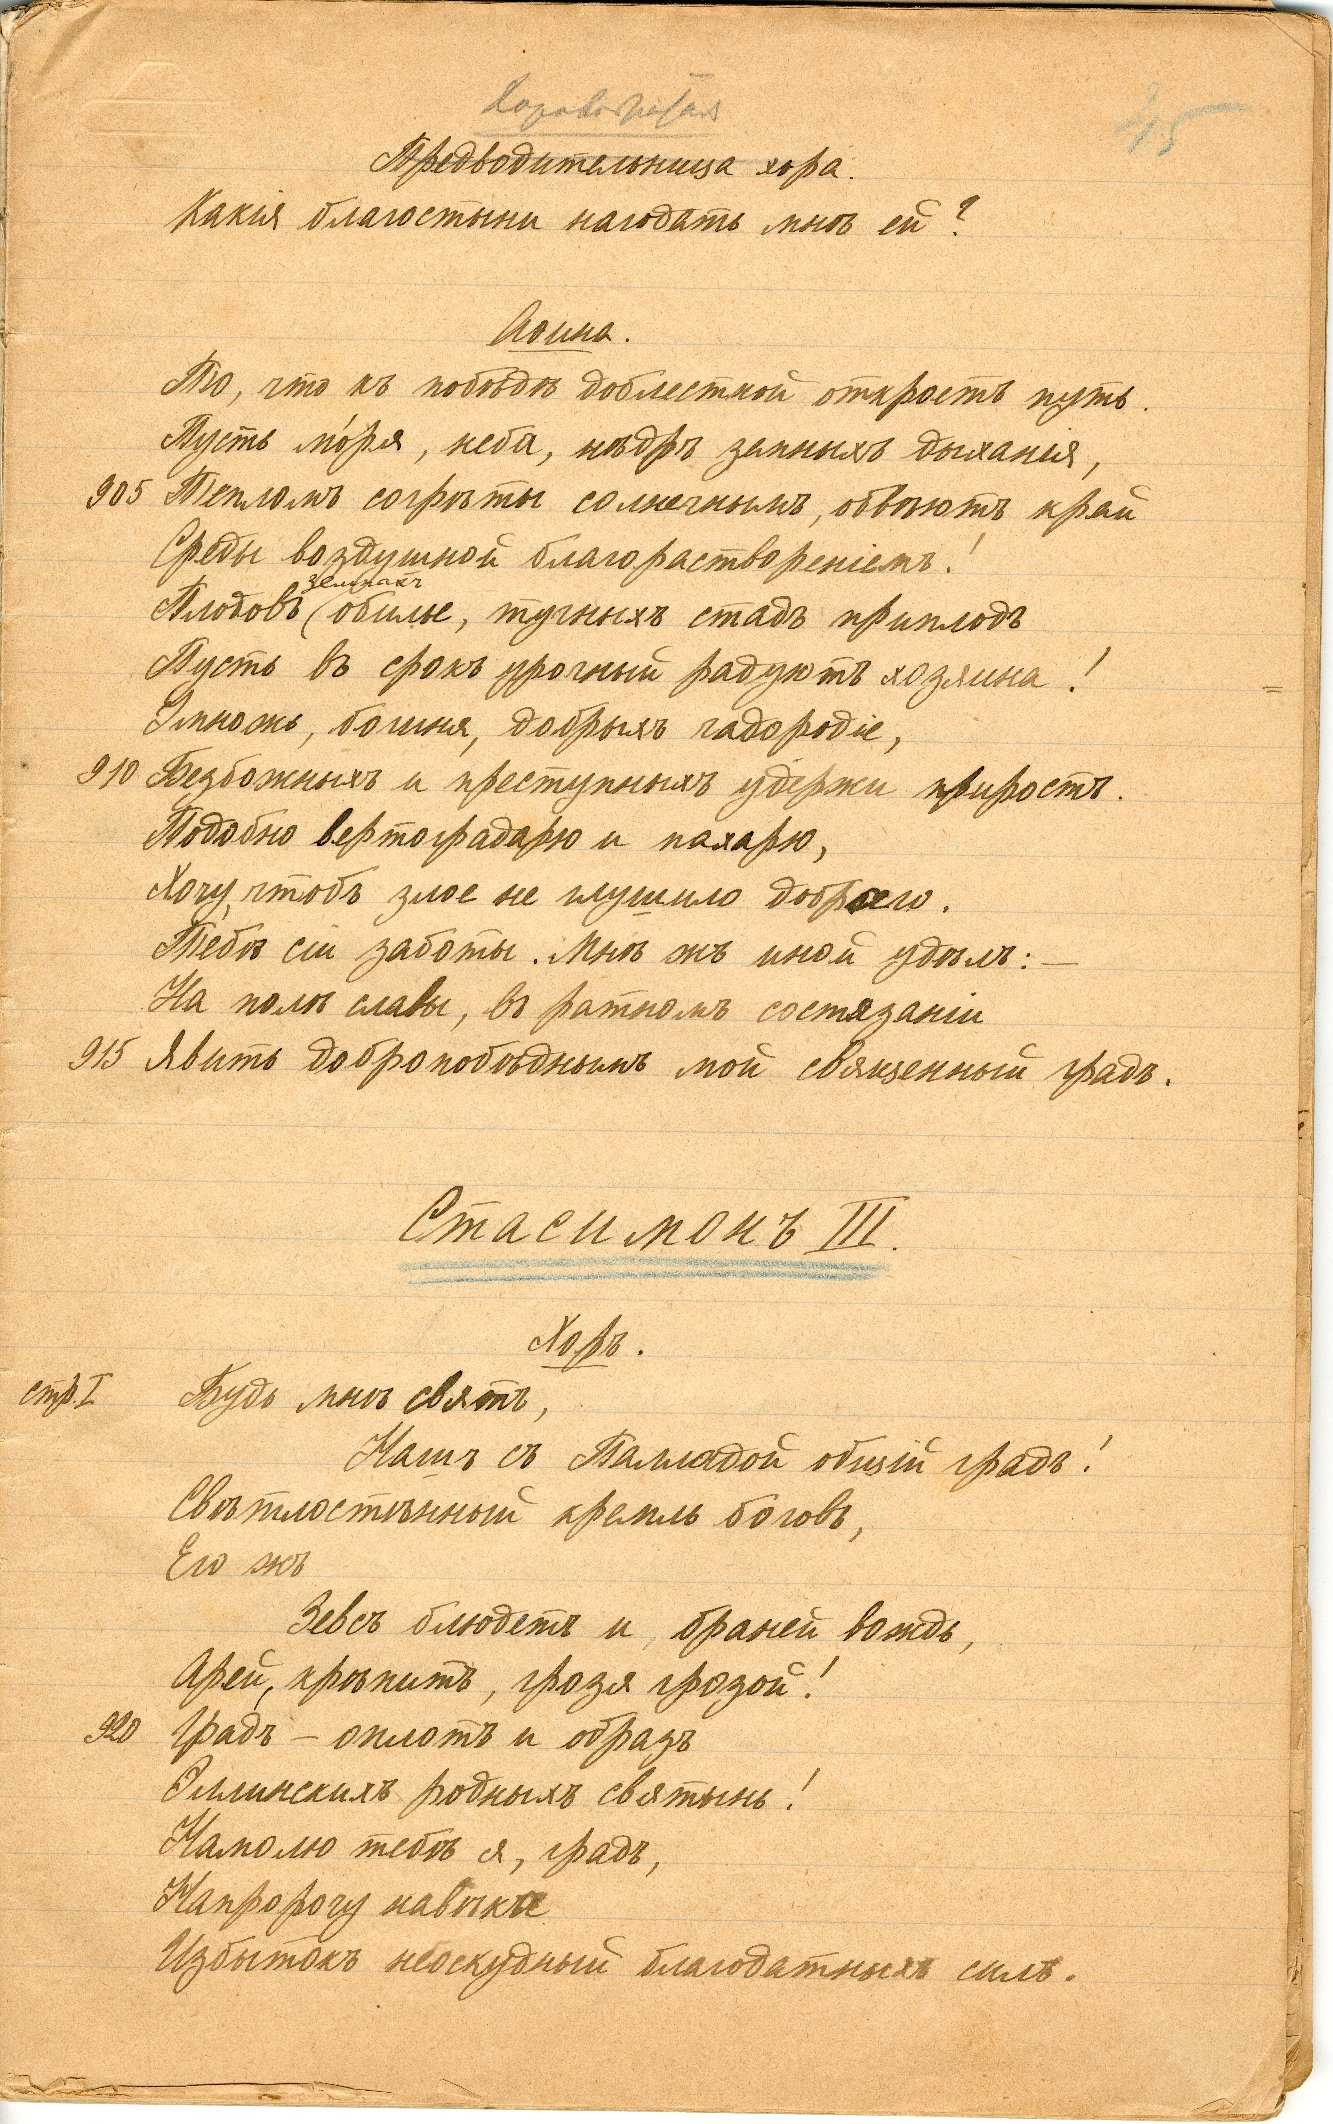 45
Хороводная
Предводительница хора.
Какія благостыни нагодать мнѣ ей?
Аѳина.
То, что къ побѣдѣ доблестной откроетъ путь.
Пусть мо́ря, неба, нѣдръ земныхъ дыханія,
905 Тепломъ согрѣты солнечнымъ, обвѣютъ край
Среды воздушной благораствореніемъ!
земныхъ
Плодовъ обилье, тучныхъ стадъ приплодъ
Пусть въ срокъ урочный радуютъ хозяина!
Умножь, богиня, добрыхъ чадородіе,
910 Безбожныхъ и преступныхъ удержи приростъ.
Подобно вертоградарю и пахарю,
Хочу, чтобъ злое не глушило добраго.
Тебѣ сіи заботы. Мнѣ жъ иной удѣлъ: —
На полѣ славы, въ ратномъ состязаніи
915 Явить добропобѣднымъ мой священный градъ.
Стасимонъ III.
Хоръ.
стр. I Будь мнѣ святъ,
Нашъ съ Палладой общій градъ!
Свѣтлостѣнный кремль боговъ,
Его жъ
Зевсъ блюдетъ и браней вождь,
Арей, крѣпитъ, грозя грозой!
920 Градъ — оплотъ и образъ
Эллинскихъ родныхъ святынь!
Намолю тебѣ я, градъ,
Напророчу навѣка
Избытокъ неоскудный благодатныхъ силъ.